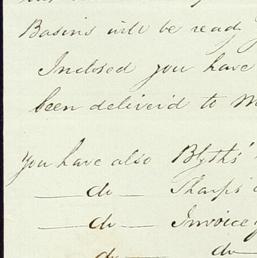 Basins will be read
Inclosed you have
been deliver'd to
You have also Blyths'
do Tharps
do Invoice
do do